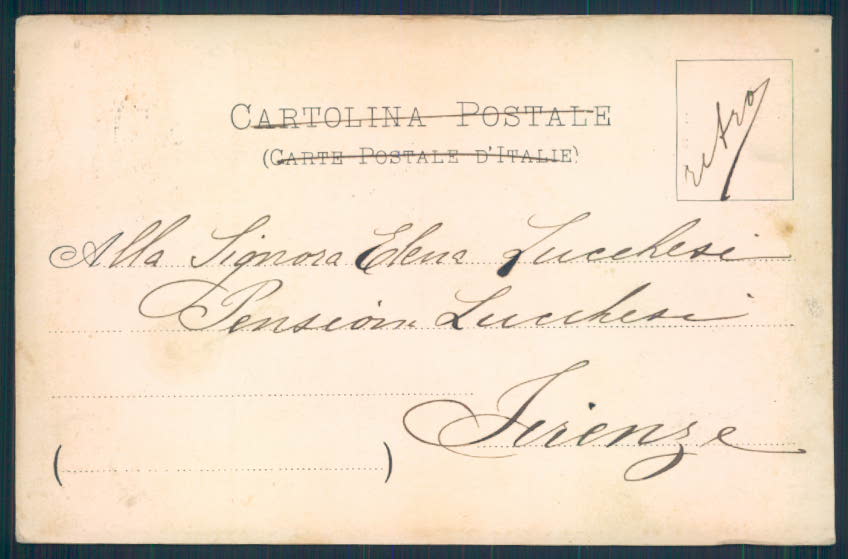 CARTOLINA POSTALE
(CARTE POSTALE D'ITALIE)
retro
Alla Signora Elena Lucchesi
Pension Lucchesi
Firenze
( )